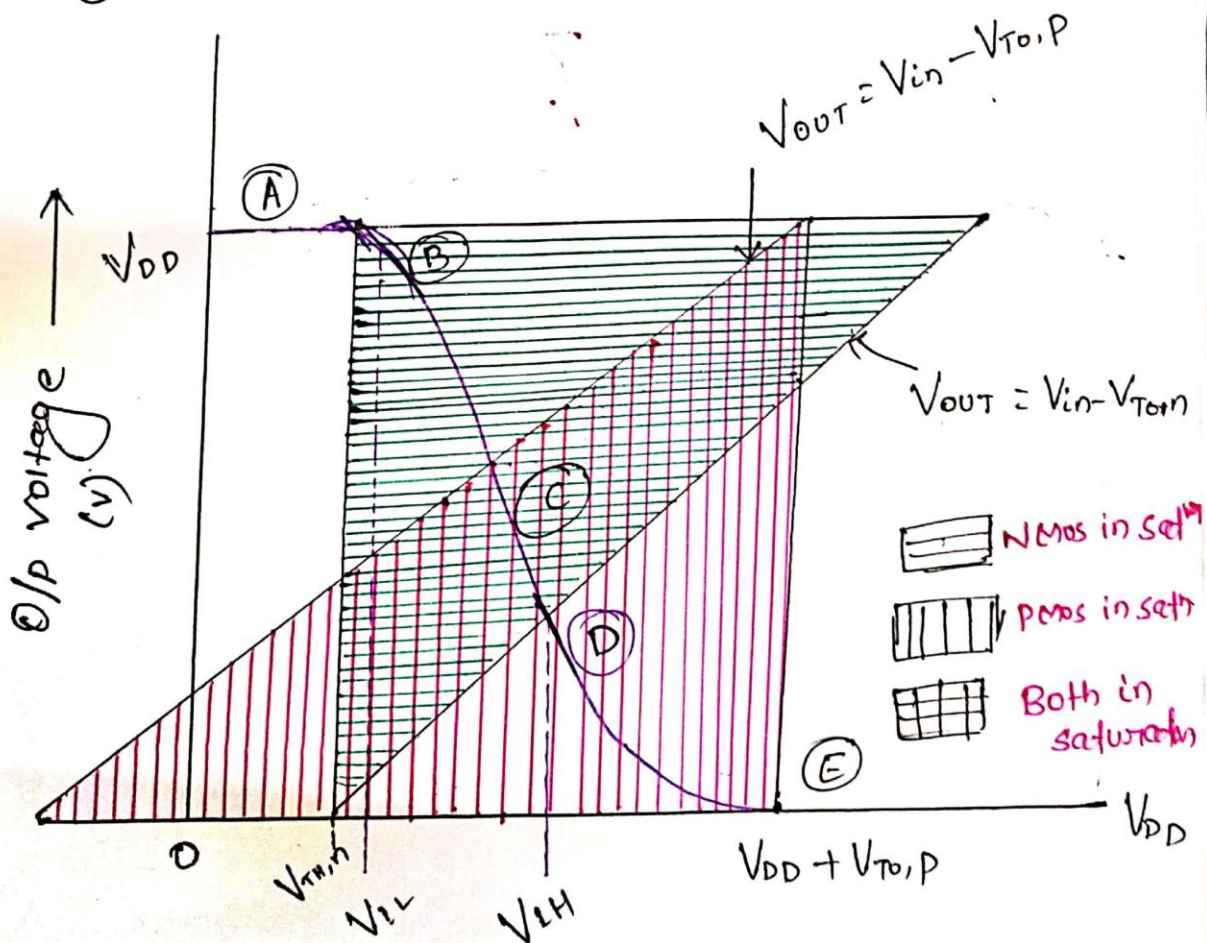 VOUT = Vin - VTO,P
A
B
VDD
O/P voltage
(V)
VOUT = Vin - VTO,n
C
NMOS in satn
PMOS in satn
D
Both in
saturatn
E
VDD
0
VTH,n
VIL
VIH
VDD + VTO,P